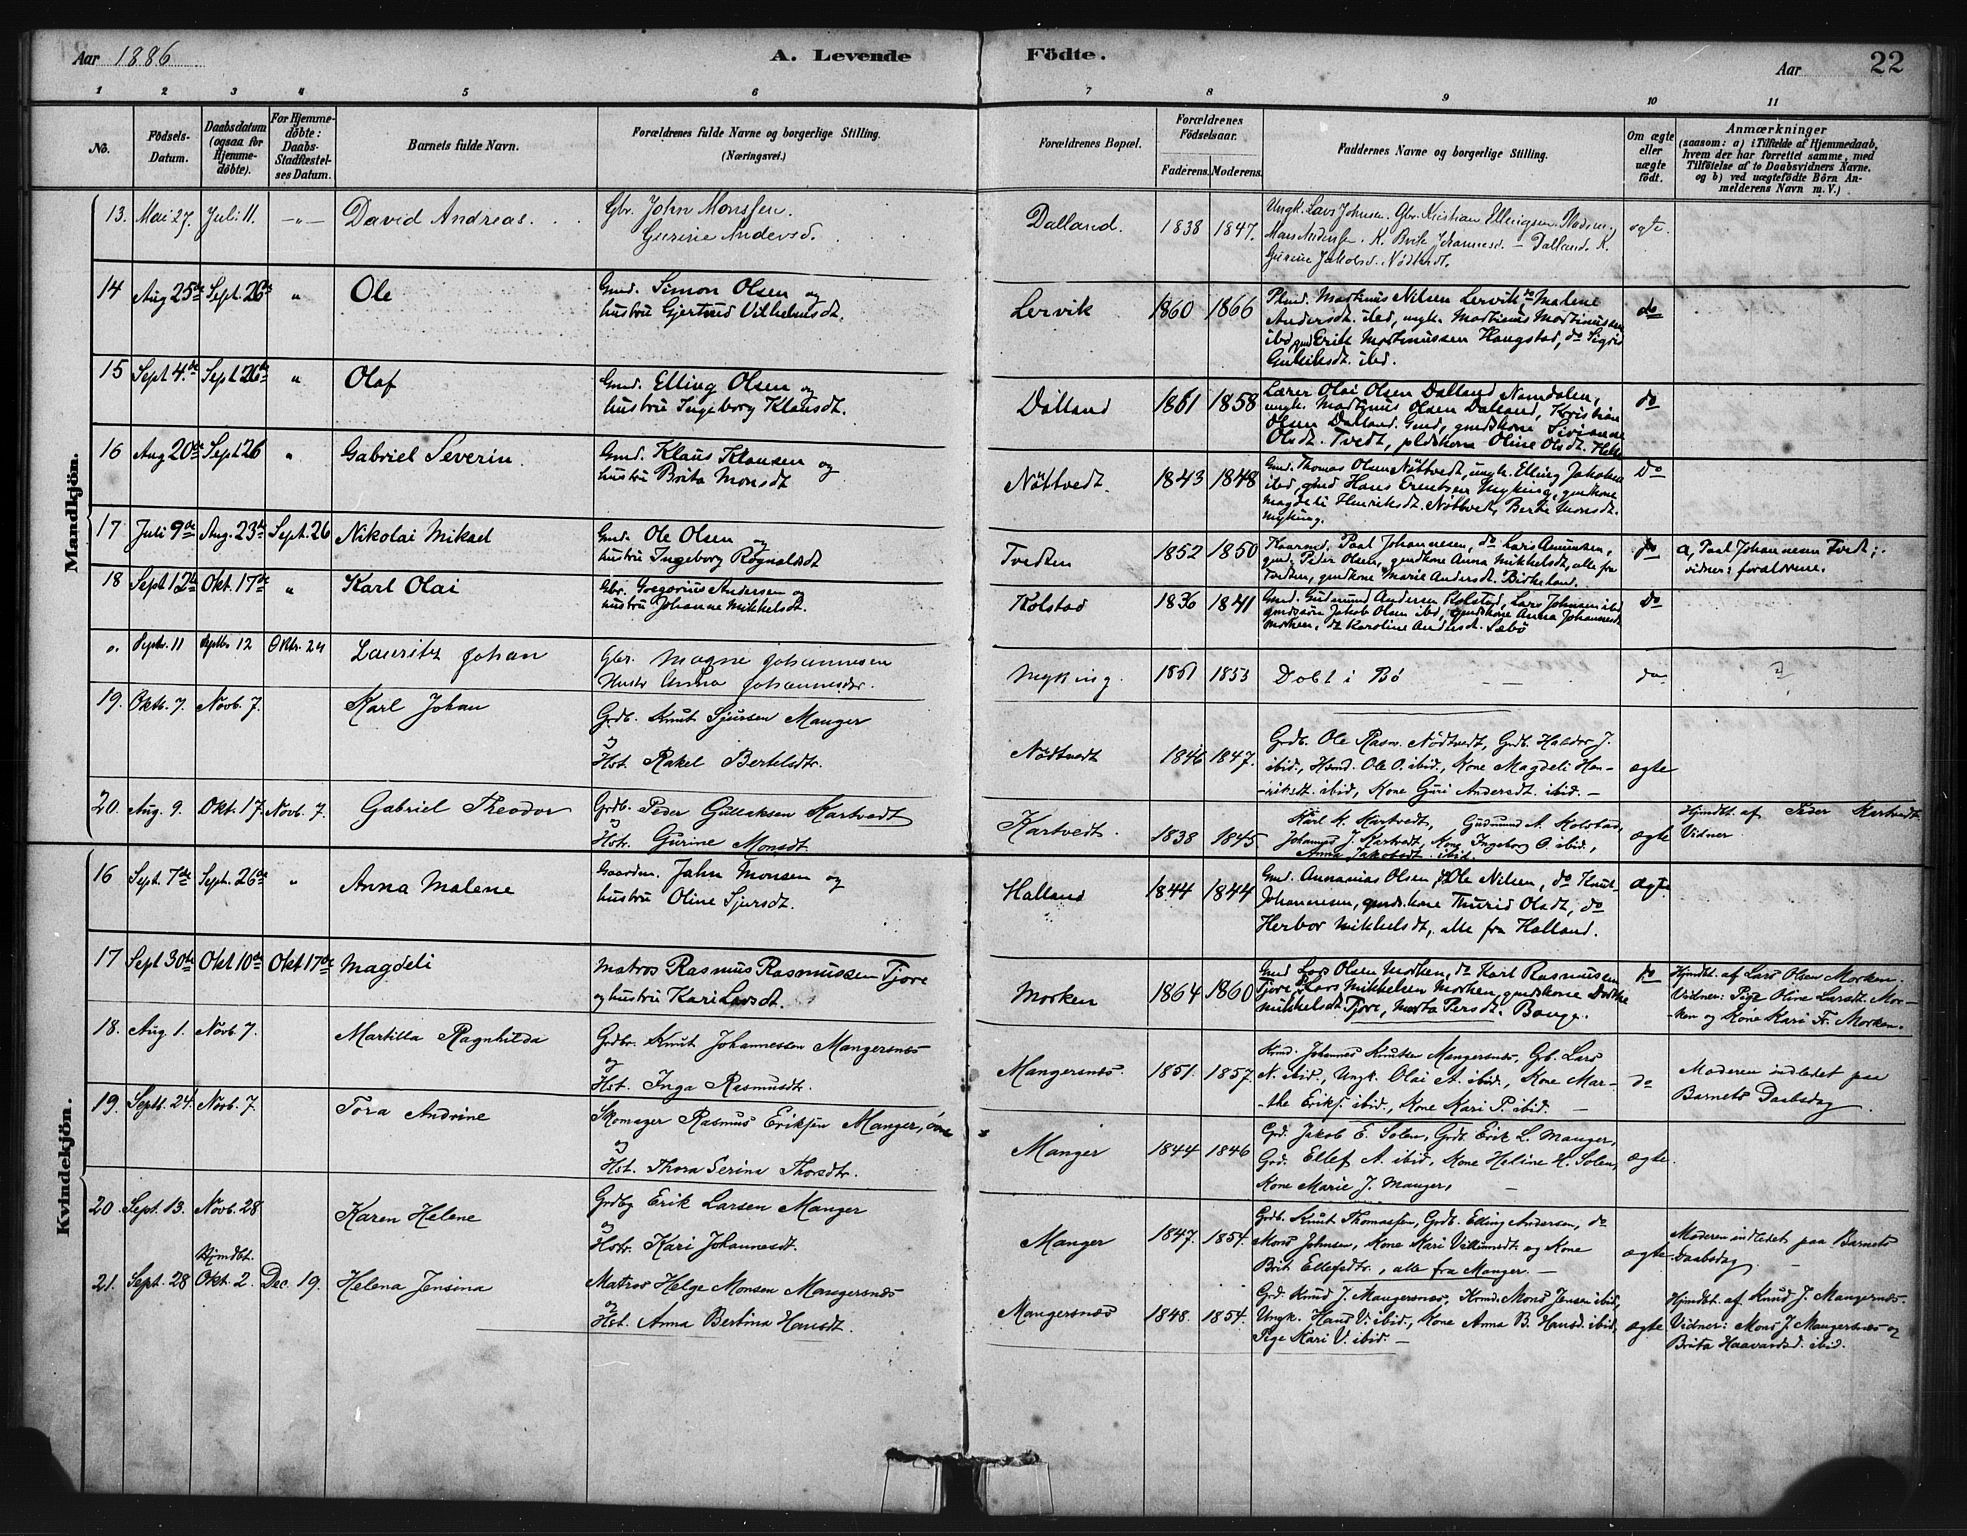 Aar 1886 A. Levende Födte. Aar 22
1 2 3 4 5 6 7 8 9 10 11
No.
Födsels-
Datum.
Daabsdatum
(ogsaa for
Hjemme-
döbte).
For Hjemme-
döbte:
Daabs-
Stadfæstel-
ses Datum.
Barnets fulde Navn.
Forældrenes fulde Navne og borgerlige Stilling.
(Næringsvei.)
Forældrenes Bopæl.
Forældrenes
Födselsaar.
Faderens. Moderens.
Faddernes Navne og borgerlige Stilling.
Om ægte
eller
uægte
födt.
Anmærkninger
(saasom: a) i Tilfælde af Hjemmedaab,
hvem der har forrettet samme, med
Tilföielse af to Daabsvidners Navne.
og b) ved uægtefödte Börn An-
melderens Navn m. V.)
Mandkjön.
13. Mai 27. Juli 11. -"- David Andreas. Gbr. John Monssen.
Gurine Andersd.
Dalland. 1838 1847. Ungk. Lars Johnsen. Gbr. Kristian Ellingsen
Mons Anderssen. K. Brite Johannesd. - Dalland. K.
Gurine Jakobsd. Nödtvedt.
ægte.
14 Aug 25de Sept. 26de " Ole Gmd. Simon Olsen og
hustru Gjertrud Vilhelmsdt.
Lervik 1860 1866 Plmd. Martinus Nilsen Lervik, do Malene
Andersdt. ibd, ungk. Martinus Martinussen
ibd, gmd Erik Martinussen Haugstad, do Sigrid
Gulleiksdt. ibd.
do
15 Sept 4de Sept 26de " Olaf Gmd. Elling Olsen og
hustru Ingeborg Klausdt.
Dalland 1861 1858 Lærer Olai Olsen Dalland, Namdalen,
ungk. Martinus Olsen Dalland, Kristian
Olsen Dalland. Gmd, gmdskone Sivianne
Olsdt. Tvedt, pldskone Oline Olsdt. Helle
do
16 Aug 20de Sept 26 " Gabriel Severin. Gmd. Klaus Klausen og
hustru Brita Monsdt
Nöttvedt. 1843 1848 Gmd. Thomas Olsen Nöttvedt, ungk. Elling Jakobsen
ibd, gmd Hans Erentsen Myking, gmdkone
Magdeli Henriksdt. Nöttvedt, Berte Monsdt.
Myking.
Do
17 Juli 9de Aug. 23de Sept. 26 Nikolai Mikael Gmd. Ole Olsen og
hustru Ingeborg Rognaldsdt
Tvedten 1852 1850 Kaarmd. Paal Johannesen, do Lars Amundsen,
gmd. Peder Olsen, gmdkone Anna Mikkelsdt, alle fra
Tvedten, gmdkone Marie Andersdt. Birkeland.
do a, Paal Johannesen Tvedt;
vidner: forældrene.
18 Sept 12te Okt. 17de " Karl Olai Gbr. Gregorius Andersen og
hustru Johanne Mikkelsdt.
Kolstad 1836 1841 Gmd. Gudmund Andersen Kolstad, Lars Johnsen ibd
gmdssön Jakob Olsen ibd, gmdskone Anna Johannesdt
Morken, do Karoline Andersdt. Sæbö
Do
o. Septbr. 11 Septbr 12 Oktbr. 24 Lauritz Johan Gbr. Magne Johannesen
Hustr Anna Johannesdr.
Myking. 1851 1853 Dobt i Bö do
19. Oktb. 7. Novb. 7. Karl Johan Grdb. Knut Sjursen Manger
og
Hst. Rakel Berthelsdtr.
Nödtvedt 1846 1847. Grdb. Ole Rasm. Nödtvedt, Grdb. Haldor J.
ibid., Hsmd. Ole O. ibid., Kone Magdeli Hen-
-riksdt. ibid, Kone Guri Andersdt. ibid. -
ægte
20. Aug. 9. Okt. 17. Novb. 7. Gabriel Theodor Grdb. Peder Gulleiksen Kartvedt
og
Hstr. Gurine Monsdt.
Kartvedt. 1838 1845 Karl N. Kartvedt, Gudmund A. Kolstad,
Johannes J. Kartvedt, Kone Ingeborg O. ibid.,
Anna Jakobsdt. ibid.
ægte Hjmdbt. af Peder Kartvedt.
Vidner
Kvindekjön.
16 Sept. 7de Sept. 26de " Anna Malene Gaardm. Jahn Monsen og
hustru Oline Sjursdt.
Halland 1844 1844 Gmd. Annanias Olsen, do Ole Nilsen, do Knut
Johannesen, gmdskone Thurid Olsdt, do
Herbor Mikkelsdt, alle fra Halland.
Ægte
17 Sept 30de Okt 10de Okt 17de Magdeli Matros Rasmus Rasmussen Tjore
og hustru Kari Larsdt.
Morken 1864 1860 Gmd Lars Olsen Morken, do Karl Rasmussen
Tjore, do Lars Mikkelsen Morken, gmdskone Dorthe
Mikkelsdt Tjore, Marta Persdt. Bauge.
do Hjmdbt. af Lars Olsen Morken;
Vidner: Pige Oline Larsdt. Mor-
-ken og Kone Kari Fr. Morken.
18. Aug 1. Novb. 7. Martilla Ragnhilda Grdbr. Knut Johannessen Mangersnæs
og
Hst. Inga Rasmusdtr.
Mangersnæs. 1851. 1857. Johannes Knutsen Mangersnæs, Gb. Lars
N. ibid., Ungk. Olai A. ibid., Kone Mar-
-the Eriks. ibid., Kone Kari P. ibid. -
do Moderen indledet paa
Barnets Daabsdag
19. Septb. 24. Novb. 7 Tora Andrine Skomager Rasmus Eriksen Manger, övre
og
Hst. Thora Serina Thorsdtr.
Manger 1844 1846 Grd. Jakob E. Solen, Grdb. Erik L. Manger,
Grd. Ellef A. ibid., Kone Heline H. Solen,
Kone Marie J. Manger,
ægte.
20 Sept. 13. Novb. 28 Karen Helene Grdbg Erik Larsen Manger
og
Hstr. Kari Johannesdt.
Manger 1847. 1854. Grdb. Knut Thomassen, Grdb. Elling Andersen, do
Mons Johnsen, Kone Kari Villumsdt. og Kone
Brit Ellefsdtr., alle fra Manger. -
ægte Moderen indledet paa Barnets
Daabsdag. -
21. Sept. 28 Hjmdbt.
Okt. 2. Dec. 19. Helena Jensina Matros Helge Monsen Mangersnæs
og
Hst. Anna Bertina Hansdt.
Mangersnæs 1848. 1854. Grd. Knud J. Mangersnæs, Mons Jensen ibid,
Ungk. Hans V. ibid, Kone Anna B. Hansd. ibid,
Pige Kari V. ibid -
ægte Hjmdbt. af Knud J. Mangersnæs.
Vidner: Mons J. Mangersnæs og
Brita Haavardsd. ibid.